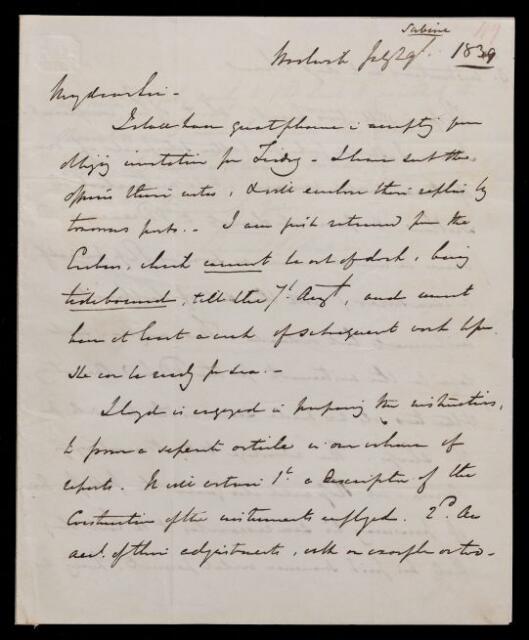 Sabine
119
Woolwich July 29th. 1839
My dear Sir –
I shall have great pleasure in accepting your
obliging invitation for Friday – I have sent the
officers their notes, & will enclose their replies by
tomorrows post. – I am just returned from the
Erebus, which cannot be out of dock, being
tidebound, till the 7th Augt, and must
have at least a week of subsequent work before
she can be ready for sea. –
Lloyd is engaged in preparing the instructions,
to form a separate article in our volume of
reports. It will contain 1st a Description of the
Construction of the instruments employed. 2d. An
acct. of their adjustments, with an example or two –